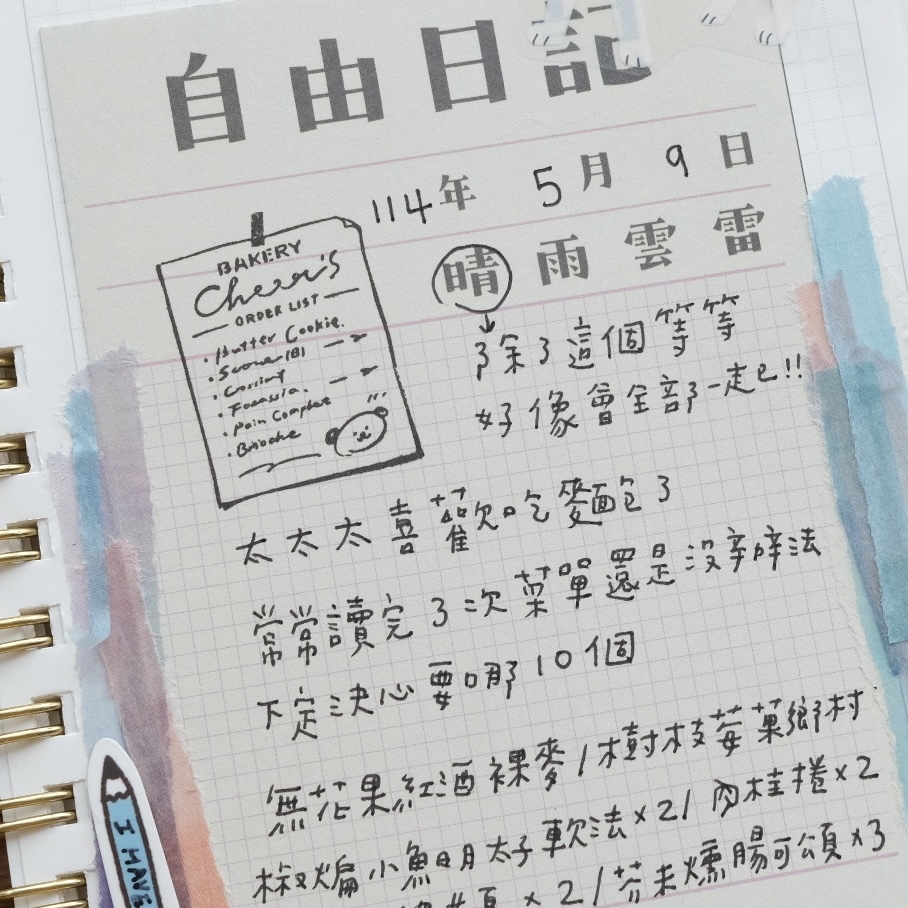 自由日記
114年 5月 9日
晴 雨 雲 雷
BAKERY
Cheer's
ORDER LIST
· Butter Cookie.
除了這個等等
好像會全部一走已!!
太太太喜歡吃麵包了
常常讀完3次菜單還是沒辛辛法
下定決心要哪10個
無花果紅酒裸麥/樹枝莓菓鄉村
椒煸小魚明太子軟法×2/肉桂捲×2
×2/芥末燻腸可頌×3
I HAVE